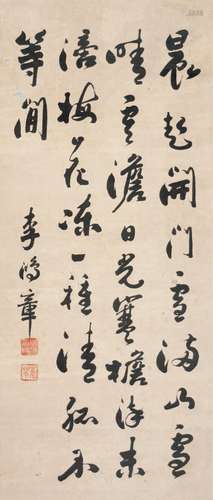 晨起開門雪滿山雪
晴雲澹日光寒檐流未
滴梅花凍一種清孤不
等閒
李鴻章